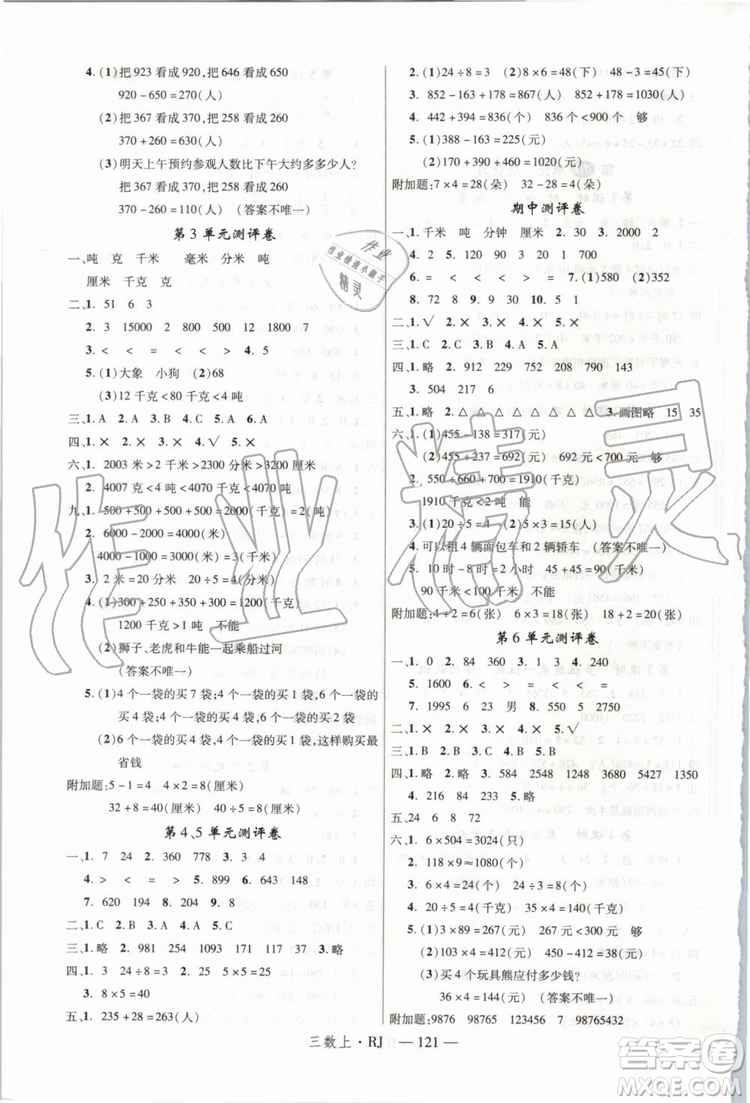 4. (1)把 923 看成 920,把 646 看成 650
920-650=270(人)
(2)把 367 看成 370,把 258 看成 260
370+260=630(人)
(3)明天上午预约参观人数比下午大约多多少人?
把 367 看成 370,把 258 看成 260
370-260=110(人) (答案不唯一)
第 3 单元测评卷
一、吨 克 千米 毫米 分米 吨
厘米 千克 克
二、1. 51 6 3
2. 3 15000 2 800 500 12 1800 7
3. < < = > < > 4. 5
5. (1)大象 小狗 (2)68
(3)12 千克<80 千克<4 吨
三、1. A 2. A 3. B 4. C 5. A
四、1. × 2. × 3. √ 4. × 5. ×
六、1. 2003 米>2 千米>2300 分米>3200 厘米
2. 4 吨>4700 千克>4070 千克>4000 克
九、1. 500+500+500+500=2000(千克)=2 吨
2. 6000-2000=4000(米)
4000-1000=3000(米) 3000 米=3 千米
3. 2 厘米=20 毫米 20÷5=4(毫米)
4. (1)300+250+350+300=1200(千克)
1200 千克>1 吨 不能
(2)狮子、老虎和牛能一起乘船过河
(答案不唯一)
5. (1)4 个一袋的买 7 袋;4 个一袋的买 1 袋,
6 个一袋的买 4 袋;4 个一袋的买 4 袋,
6 个一袋的买 2 袋
(2)6 个一袋的买 4 袋,4 个一袋的买 1 袋,这样购买最
省钱
附加题:5-1=4 4×2=8(厘米)
32+8=40(厘米) 40÷5=8(厘米)
第 4、5 单元测评卷
一、1. 7 24 2. 360 778 3. 8 144
4. > < = > 5. 9 200 6. 643 148
7. 620 194 8. 204 9. 5
二、1. × 2. × 3. × 4. √ 5. √
三、1. 略 2. 981 254 1093 171 117 3. 略
四、1. 24 24÷8=3 2. 4 4×9=36
3. 8 5×8=40
五、1. 235+28=263(人)
2. (1)24÷8=3 (2)8×6=48(下) 48-3=45(下)
3. 852-178=674(元) 852+178=1030(人)
4. 442+394=836(个) 836<900(个) 够
5. (1)388-163=225(元)
(2)560+460=1020(元)
附加题:7×4=28(朵) 32-28=4(朵)
期中测评卷
一、1. 千米 吨 分钟 厘米 2. 30 3. 2000 2
4. 2 120 5. 900 6. > < = 7. (1)580 (2)52
8. 72 8 9 10. 5 11. 560
二、1. √ 2. × 3. × 4. × 5. ×
三、1. B 2. C 3. B 4. C 5. A
四、1. 略 2. 912 292 208 790 143
3. 504 217 6
五、1. 略 2. △ △ △ △ △ △ △ 3. 画图略 15 35
六、1. (1)455-138=317(元)
(2)455+237=692(元) 692 元<700 元 够
2. 550+660+700=1910(千克)
1910 千克<2 吨 能
3. (1)20÷5=4(分) (2)5×3=15(分)
4. 可以租 4 辆面包车和 2 辆轿车 (答案不唯一)
5. 10 时-8 时=2 小时 45+45=90(千米)
90 千米<100 千米 不能
附加题:4+2=6(张) 6×3=18(张) 18+2=20(张)
第 6 单元测评卷
一、1. 0 2. 84 360 3. 1 4. 240
5. 1600 6. < < > =
7. 1995 6 23 男 8. 550 5 2750
二、1. √ 2. √ 3. × 4. × 5. ×
三、1. B 2. B 3. C 4. A 5. C
四、1. 略 2. 略 3. 584 2548 5427 4512 1350
4. 216 234 833
五、24 6 8 72
六、1. 6×504=3024(只)
2. 118×9≈1080(个)
3. 6×4=24(个) 24×5=120(个)
4. 20÷5=4(千克) 25×4=100(千克)
5. (1)3×89=267(元) 267 元<300 元 够
(2)103×4=412(元) 450-412=38(元)
(3)买 4 个玩具熊应付多少钱?
36×4=144(元) (答案不唯一)
附加题:9876 98765 123456 7 98765432
三数上·RJ — 121 —
作业
作业检查小助手
精灵
作业精灵
答案圈
MXQE.COM